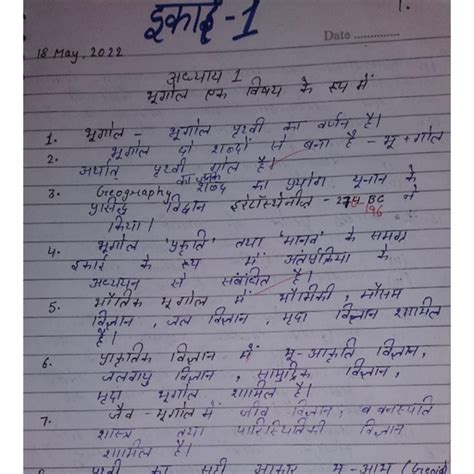 1.
इकाई-1
18 May, 2022
Date
अध्याय 1
भूगोल एक विषय के रूप में
1. भूगोल - भूगोल पृथ्वी का वर्णन है।
2. भूगोल दो शब्दों से बना है - भू + गोल
अर्थात् पृथ्वी गोल है।
3. Geography का शब्द का प्रयोग यूनान के
प्रसिद्ध विद्वान इरेटॉस्थेनीज - BC ने
किया।
4. भूगोल 'प्रकृति' तथा 'मानव' के समग्र
इकाई के रूप में अंतर्प्रक्रिया के
अध्ययन से संबंधित है।
5. भौतिक भूगोल में भौमिकी, मौसम
विज्ञान, जल विज्ञान, मृदा विज्ञान शामिल
हैं।
6. प्राकृतिक विज्ञान में भू-आकृति विज्ञान,
जलवायु विज्ञान, सामुद्रिक विज्ञान,
मृदा भूगोल शामिल हैं।
7. जैव-भूगोल में जीव विज्ञान, व वनस्पति
शास्त्र तथा पारिस्थितिकी विज्ञान
शामिल हैं।
8. पृथ्वी का सही आकार भू-आभ (Geoid)